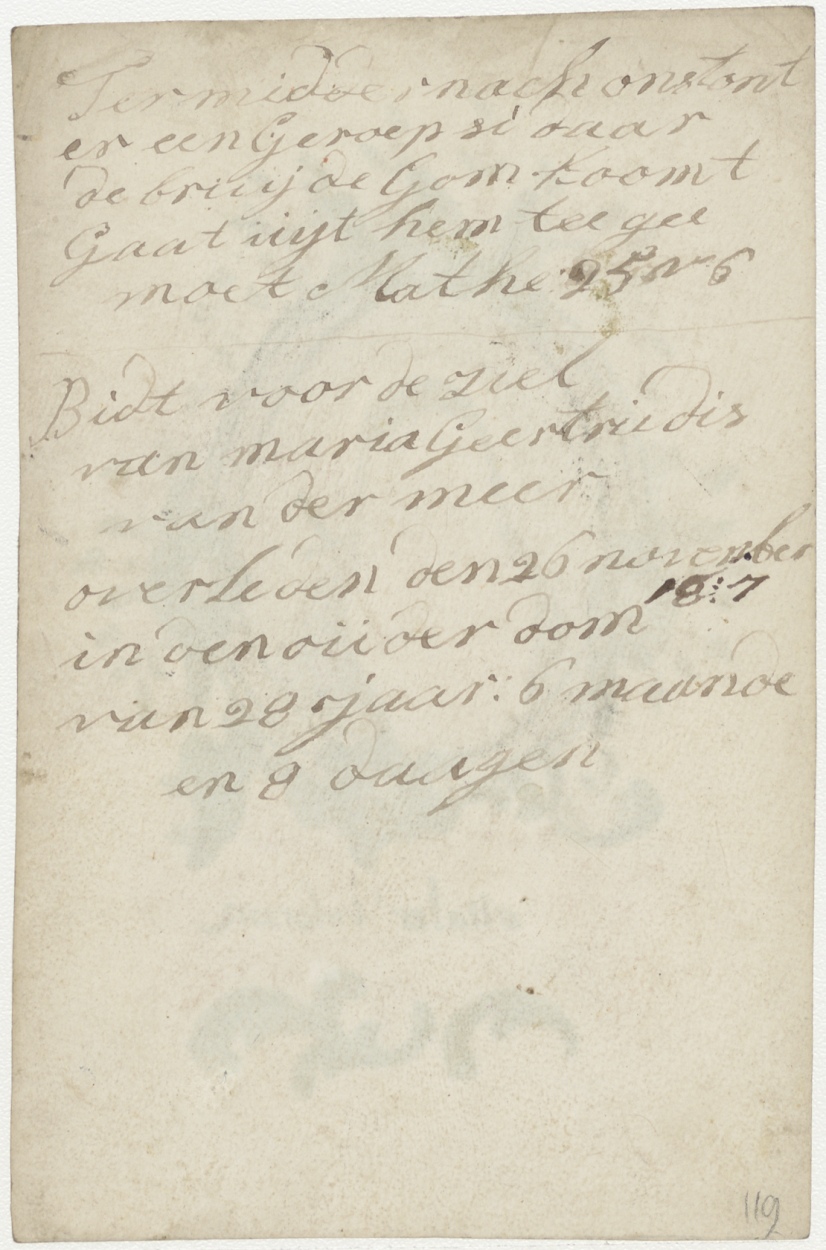 Ter middernach onstont
er een Geroep si daar
de bruijde Gom koomt
Gaat uijt hem tee gee
moet Mathe: 25 nr 6
Bidt voor de ziel
van maria Geertrudis
van der meer
overleden den 26 november
18:7
in den ouder dom
van 28 jaar: 6 maande
en 8 daagen
119